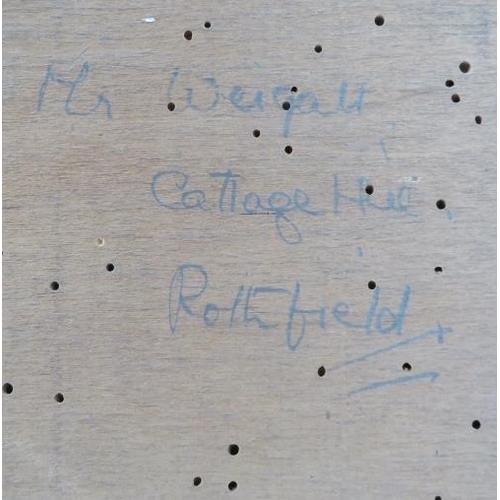 Mr Weigall
Cottage Hill
Rothfield